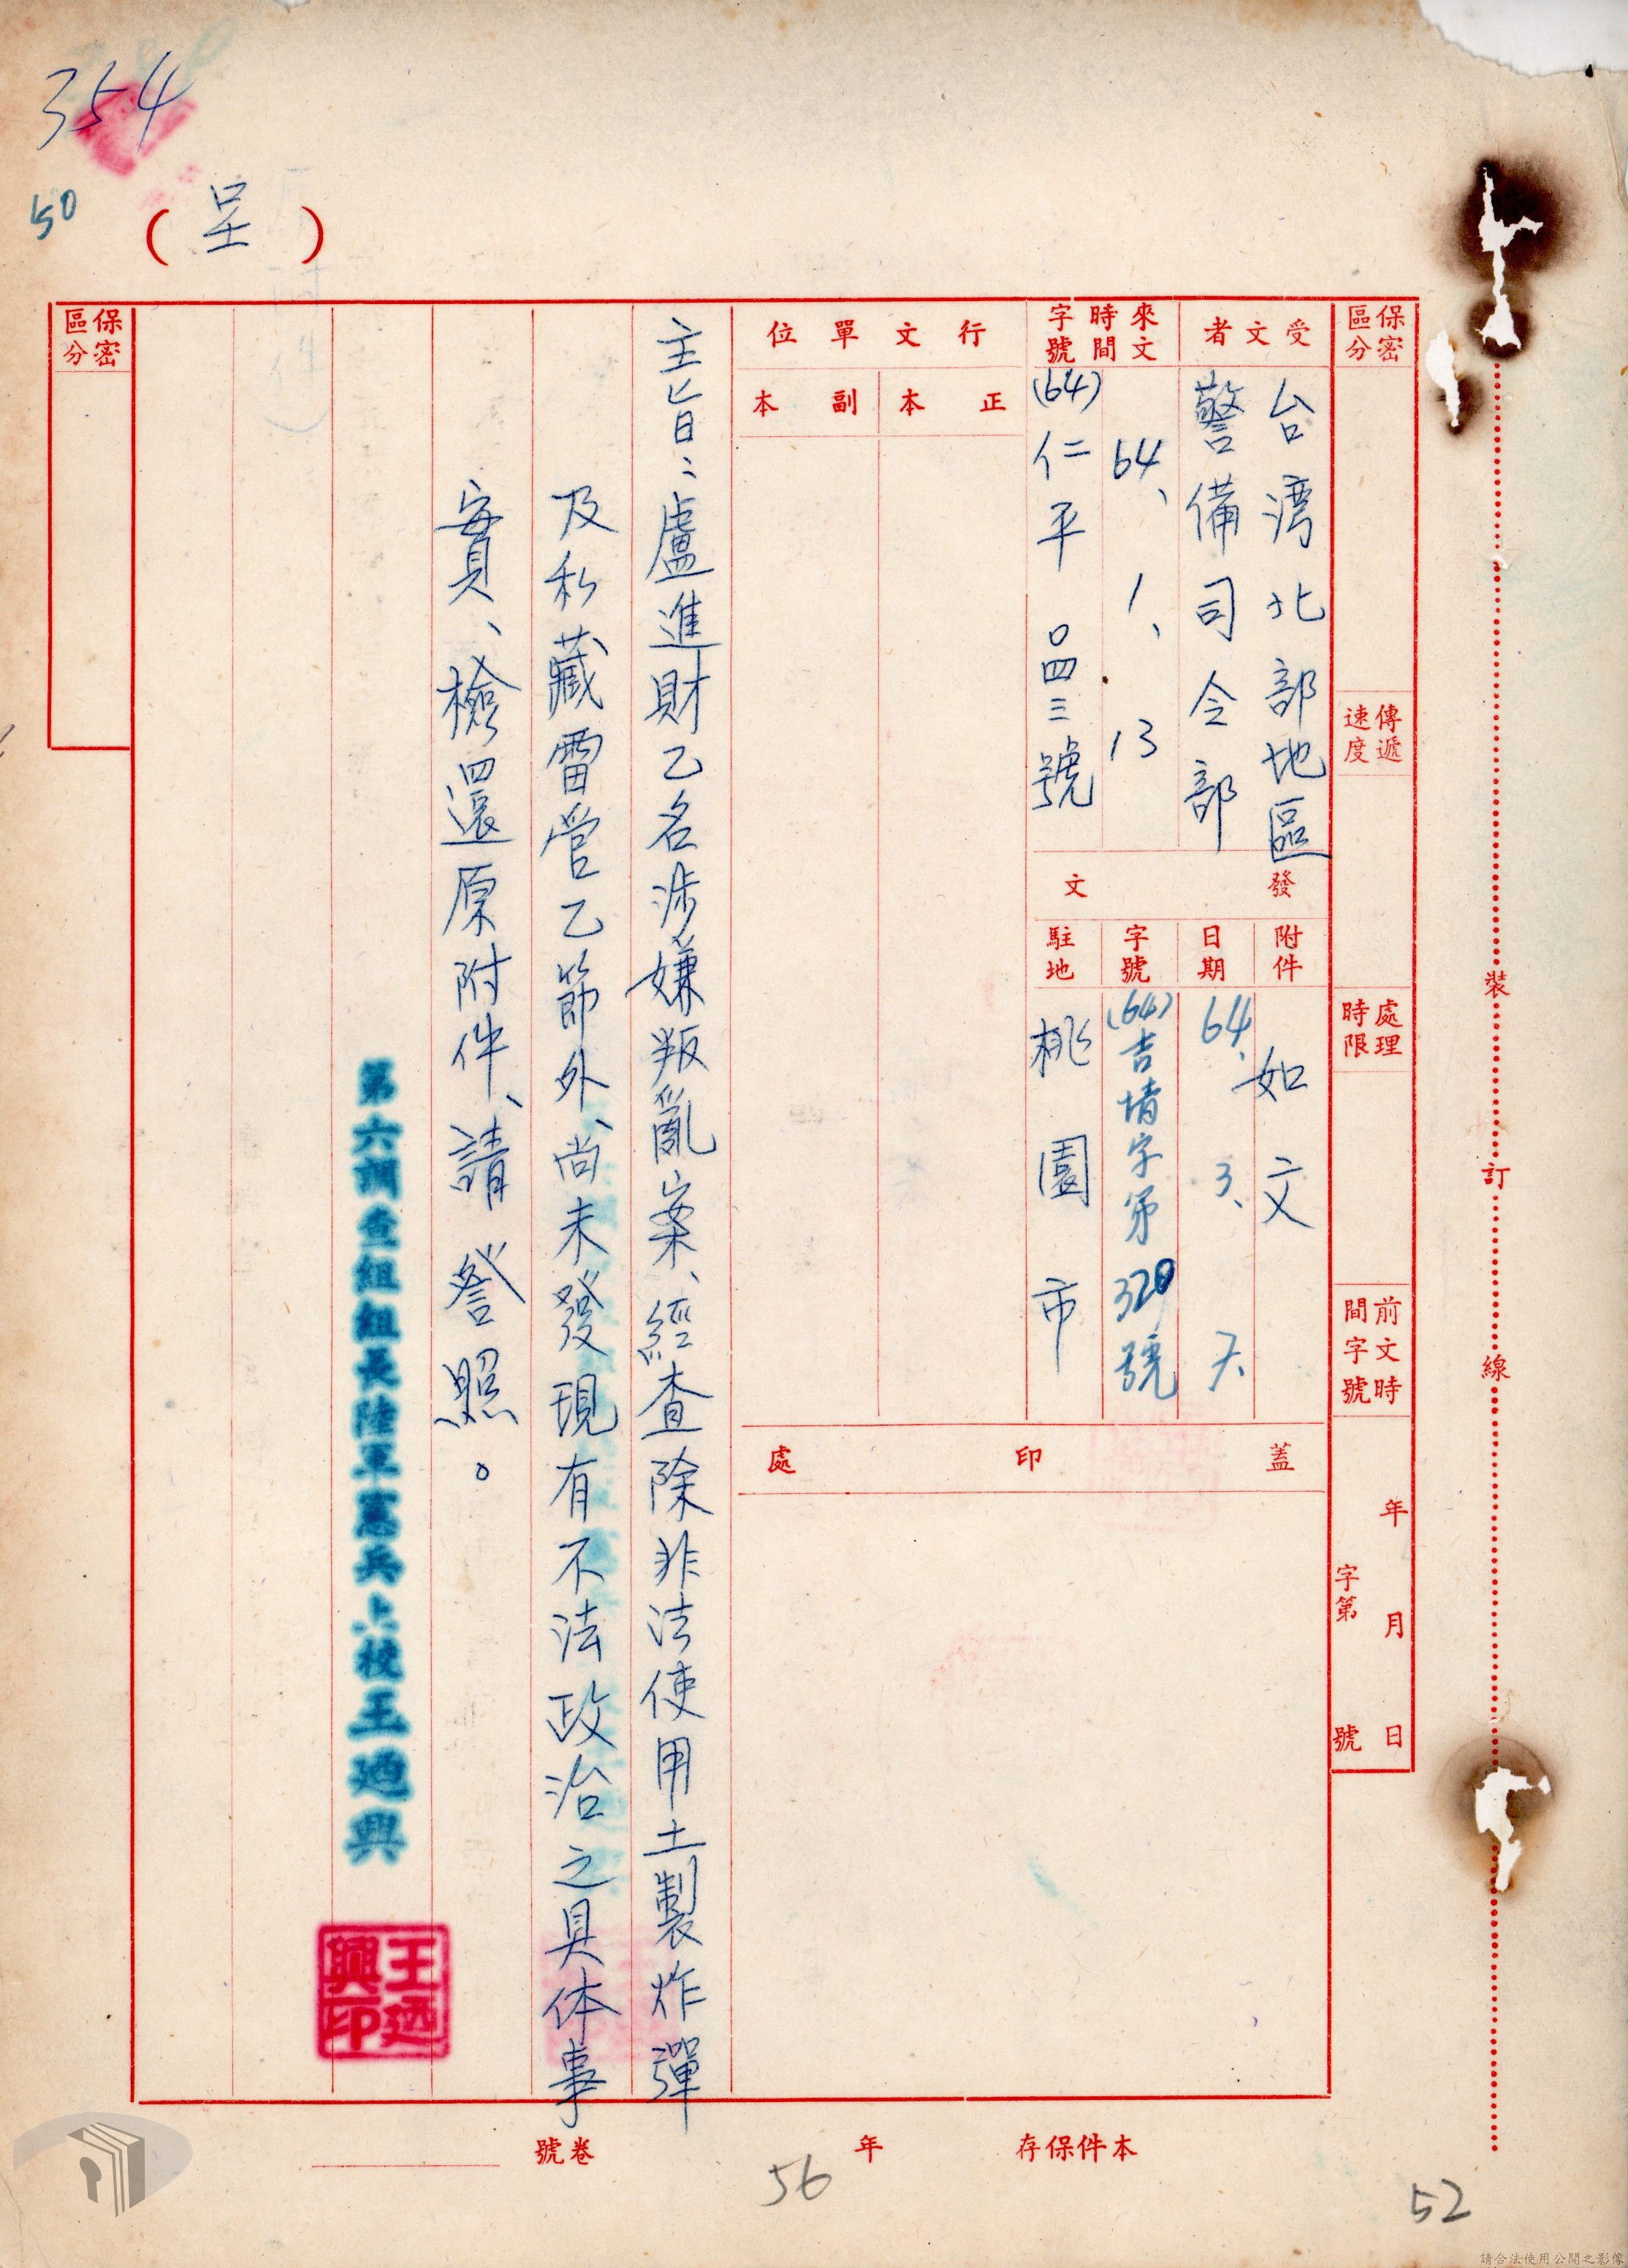 354
50
(呈)
保密區分
傳遞速度
處理時限
前文時間字號
年 月 日
字第 號
受文者
台灣北部地區
警備司令部
來文時間字號
64、1、13
(64)仁平0四三號
發文
附件
如文
日期
64、3、7、
字號
(64)吉情字第320號
駐地
桃園市
行文單位
正本
副本
蓋印處
主旨:盧進財乙名涉嫌叛亂案、經查除非法使用土製炸彈
及私藏雷管乙節外、尚未發現有不法政治之具体事
實、檢還原附件、請詧照。
第六調查組組長陸軍憲兵上校王廼興
王廼興印
保密區分
裝訂線
本件保存 年
卷號
56
52
請合法使用公開之影像